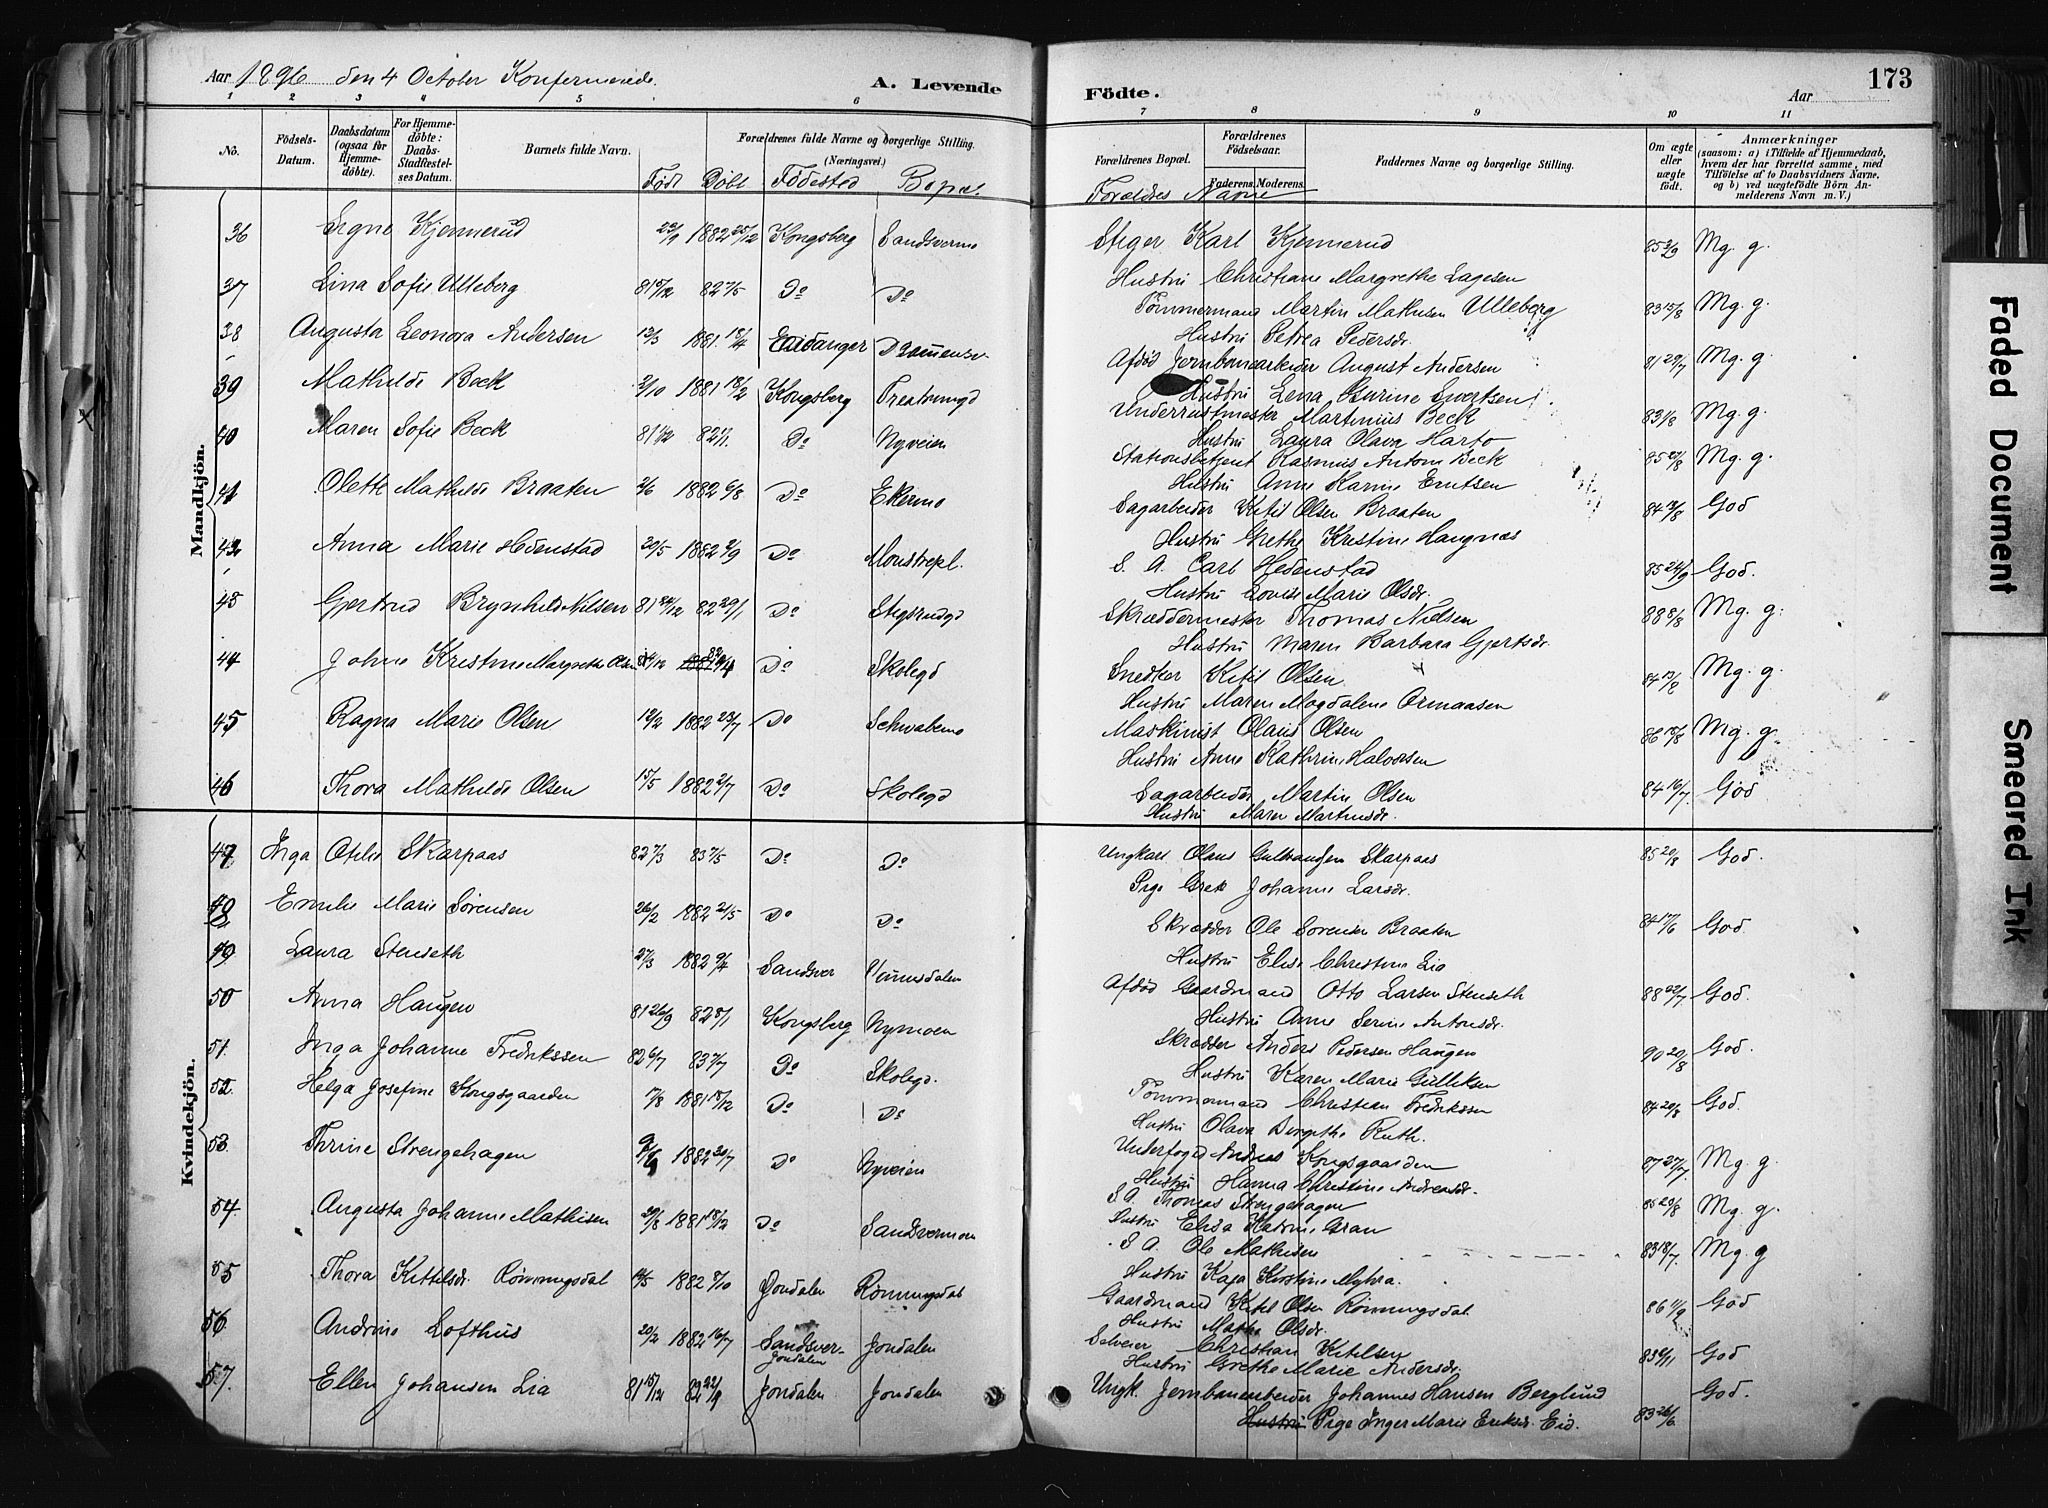 Aar 1896 den 4 October Konfermerede. A. Levende
Födte. Aar 173
1 2 3 4 5 6 7 8 9 10 11
No. Födsels-Datum. Daabsdatum (ogsaa for Hjemmedöbte). For Hjemmedöbte: Daabs-Stadfæstelses Datum. Barnets fulde Navn. Forældrenes fulde Navne og borgerlige Stilling. (Næringsvei.)
Forældrenes Bopæl. Forældrenes Födselsaar. Faderens. Moderens. Faddernes Navne og borgerlige Stilling. Om ægte eller uægte födt. Anmærkninger (saasom: a) i Tilfælde af Hjemmedaab, hvem der har forrettet samme, med Tilföielse af to Daabsvidners Navne, og b) ved uægtefödte Börn Anmelderens Navn m. V.)
Født Döbt Födested Bopæl
Foreldres Navne
Mandkjön.
36 Signe Kjennerud 22/9 1882 25/12 Kongsberg Sandsvermo
Stiger Karl Kjennerud 85 3/9 Mg. g.
Hustru Christiane Margrethe Lagesen
37 Lina Sofie Ulleberg 82 7/5 Do Do
Tömmermand Martin Mathisen Ulleberg 83 15/8 Mg. g.
Hustru Petrea Pedersdr.
38 Augusta Leonora Andersen 12/3 1881 18/4 Eidanger
Afdød Jernbanearbeider August Andersen 81 29/7 Mg. g
Hustru Lena Gurine Evertsen
39 Mathilde Beck 2/10 1881 18/2 Kongsberg
Underrustmester Martinius Beck 83 1/8 Mg. g.
Hustru Laura Olava
40 Maren Sofie Beck Do Nyveien
Stationsbetjent Rasmus Anton Beck Mg. g.
Hustru Anne Karine
41 Olette Mathilde Braaten 2/6 1882 6/8 Do Ekermo
Sagarbeider Kitil Olsen Braaten God
Hustru Grethe Kristine Haugnæs
42 Anna Marie Hedenstad 20/5 1882 Do
S. A. Carl Hedenstad 85 24/9 God.
Hustru Lovise Marie Olsdr.
43 Gjertrud Brynhild Nilsen 82 29/1 Do
Skræddermester Thomas Nilsen 88 8/8 Mg. g.
Hustru Maren Barbara Gjertsdr.
44 Johne Kristine Margrethe Olsen Do Skolegd
Snedker Kitil Olsen Mg. g.
Hustru Maren Magdalene
45 Ragna Marie Olsen 1882 23/7 Do
Maskinist Olaus Olsen Mg. g.
Hustru Anne Kathrine Halvorsen
46 Thora Mathilde Olsen 15/5 1882 2/7 Do Skolegd
Sagarbeider Martin Olsen 84 16/7 God
Hustru Maren Martinsdr.
Kvindekjön.
47 Inga Otilie Skarpaas 82 7/3 83 7/5 Do Do
Ungkarl Olaus Gulbrandsen Skarpaas 85 20/8 God.
Pige Grete Johanne Larsdr.
48 Emilie Marie Sørensen 26/2 1882 21/5 Do Do
Skrædder Ole Sorensen Braaten 84 17/6 God.
Hustru Elise Christine Lia
49 Laura Stenseth 27/3 1882 9/4 Sandsver
Afdød Gaardmand Otto Larsen Stenseth 88 22/7 God.
Hustru Anne Serine Antonsdr.
50 Anna Haugen 81 26/9 82 8/1 Kongsberg Nymoen
Skrædder Anders Pedersen Haugen 90 20/8 God.
Hustru Karen Marie Gulliksen
51. Inga Johanne Fredrikssen 82 6/7 Do Skolegd.
Tömmermand Christian Fredrikssen 84 20/8 God.
Hustru Olava Bergithe Ruth.
52. Helga Josefine Kongsgaarden 1881 18/12 Do Do
Underfoged Andreas Kongsgaarden 87 27/7 Mg. g.
Hustru Hanna Christine Andreasdr.
53. Thrine Strengehagen 1882 Do Nyveien
S. A. Thomas Strengehagen Mg. g.
Hustru Elisa Katrine Gran
54. Augusta Johanne Mathisen 1881 18/12 Do Sandvermoen
S. A. Ole Mathisen 83 18/7. Mg. g
Hustru Kaja Kirstine Myhra.
55 Thora Kittilsdr. Rönningsdal 1882 8/10 Jondalen Rönningsdal
Gaardmand Kitil Olsen Rönningsdal God
Hustru Olsdr.
56 Andrine Lofthus 20/2 1882 16/7 Sandsver-Jondalen Jondalen
Selveier Christian Kitilsen God
Hustru Grethe Marie Andersdr.
57. Ellen Johansen Lia 81 15/12 82 22/9 Jondalen Jondalen
Ungk. Jernbanearbeider Johannes Hansen Berglund 83 26/6 God.
Hustru Pige Inger Marie Eriksdr. Eid.
Faded Document
Smeared Ink